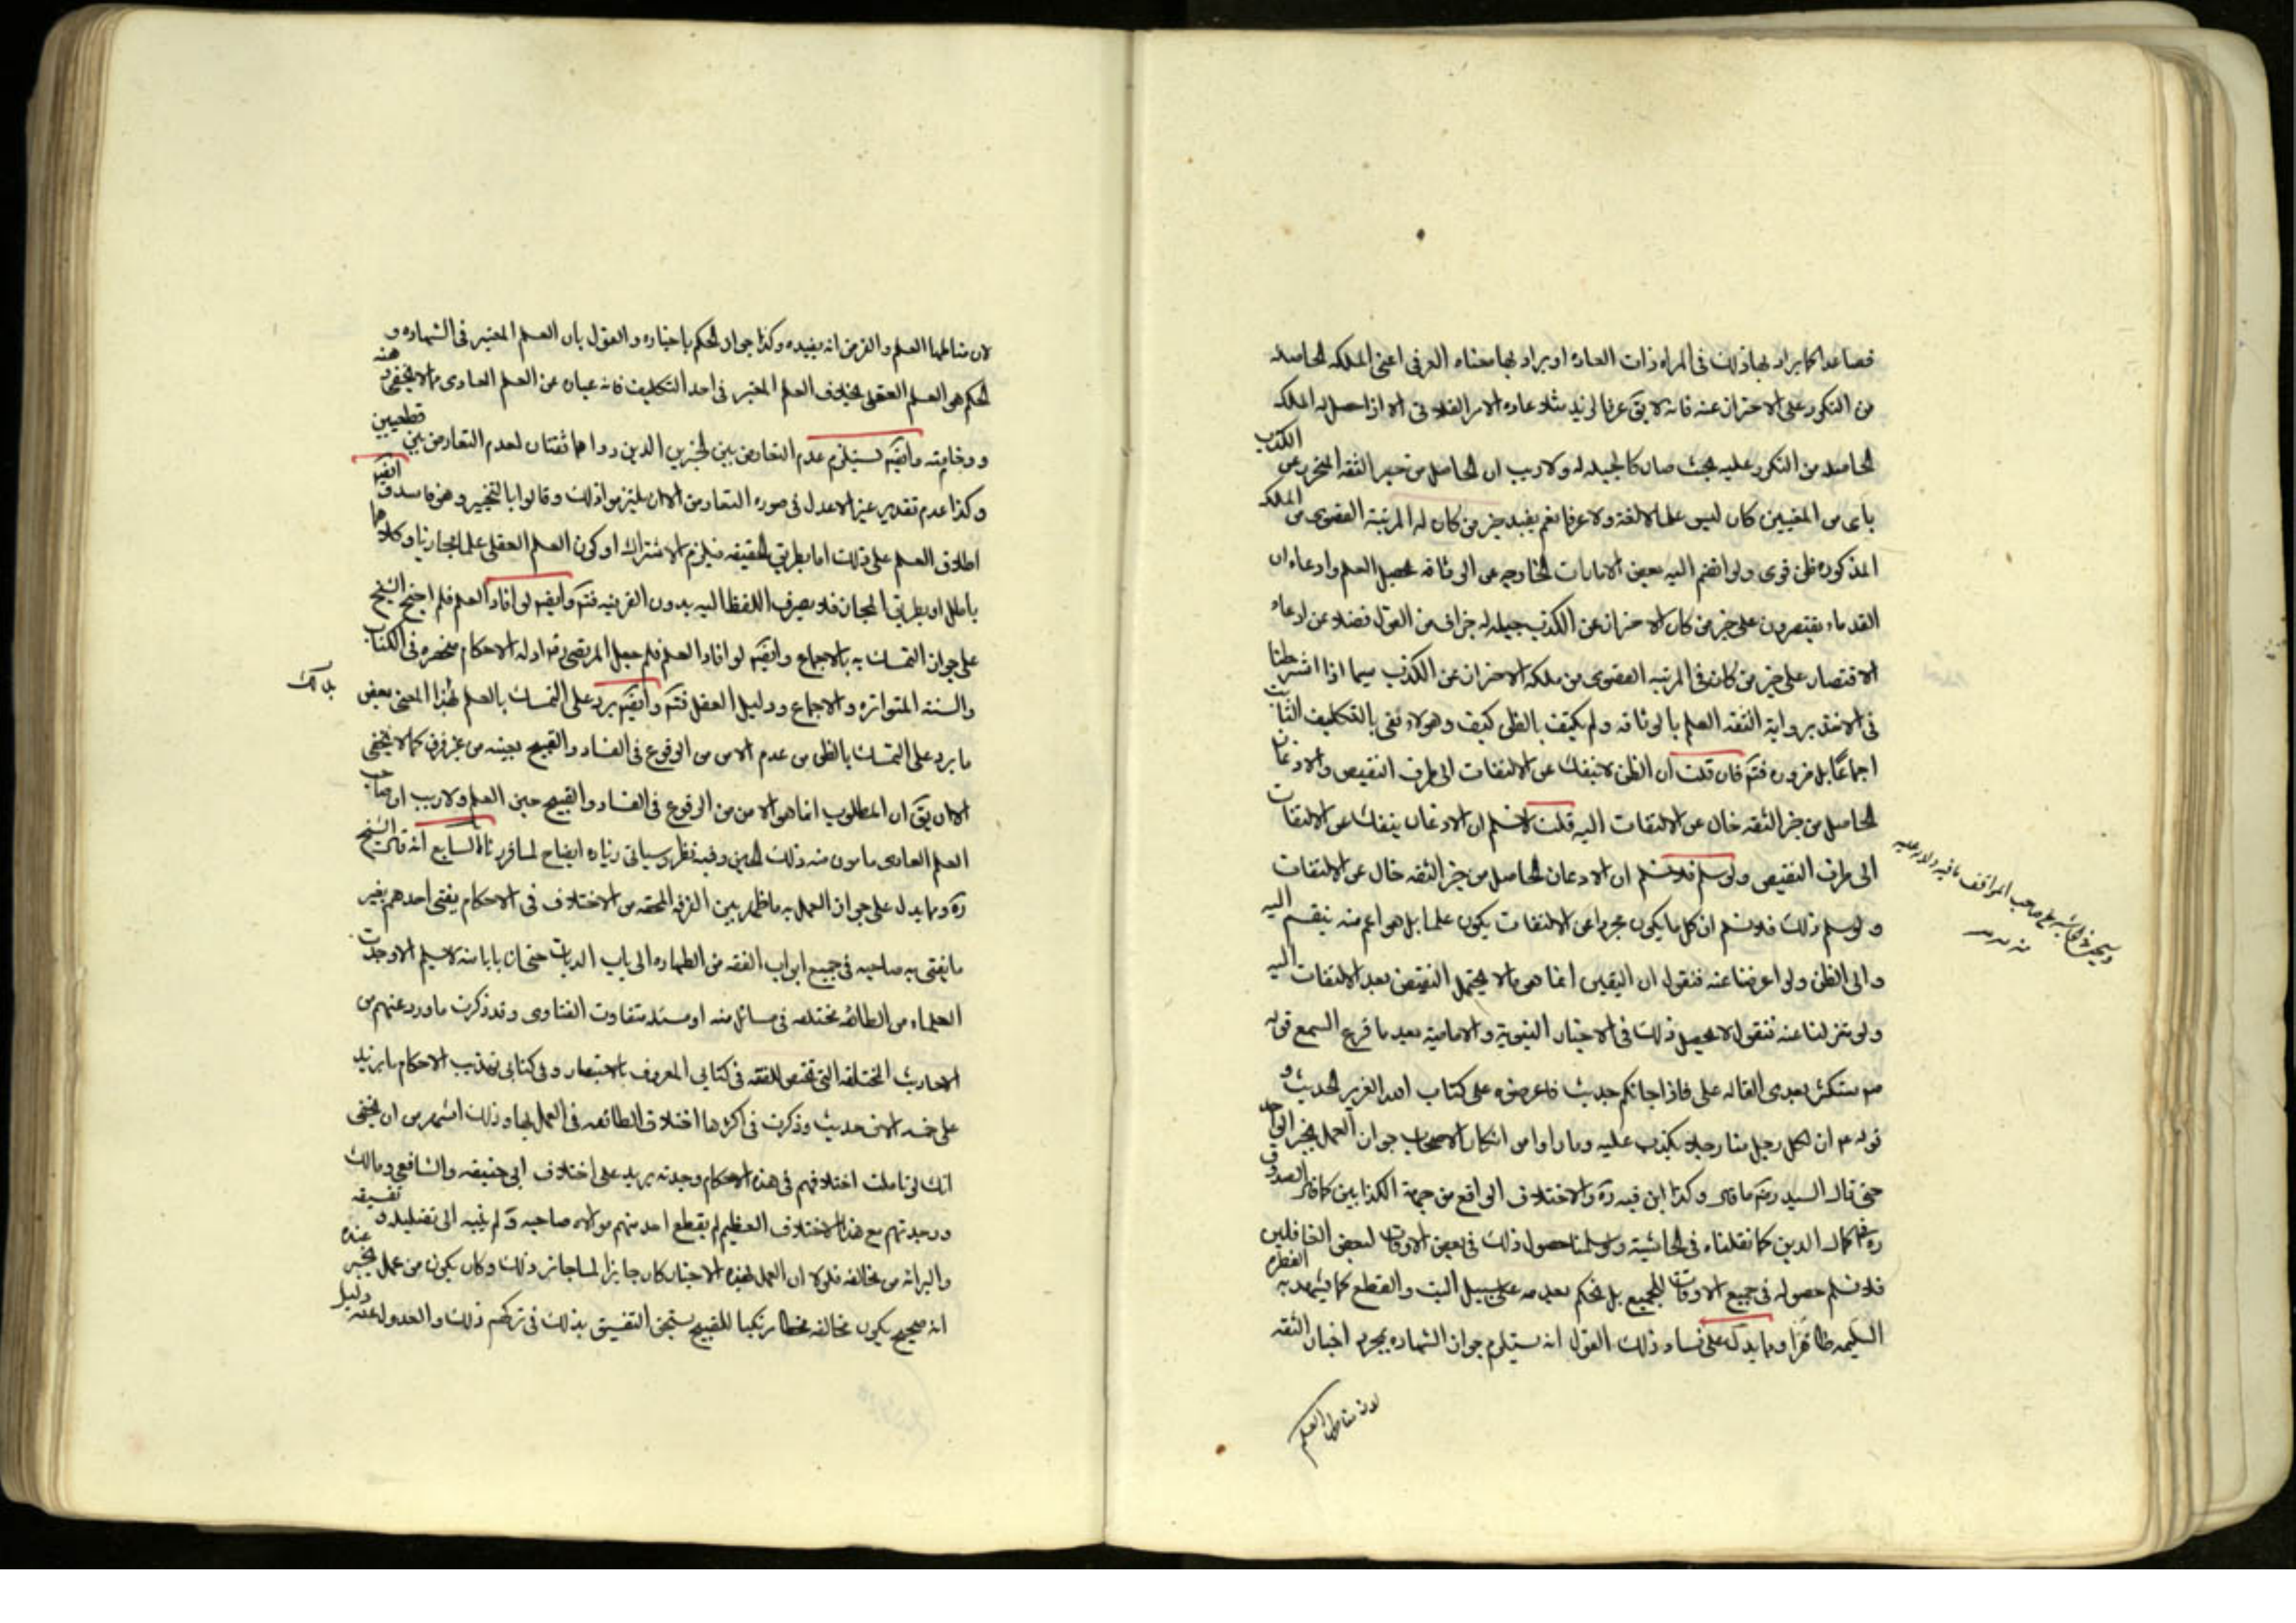 فصاعدا كما يراد بها ذلك فى المراه ذات العادة او يراد بها معناه العرفى اعنى الملكه الحاصله
من التكرر على الاحتراز عنه فانه لا يق عرفا لزيد مثلا عاده الامر الفلانى الا اذا حصل له الملكه
الحاصله من التكرر عليه بحيث صار كالجبلة له ولا ريب ان الحاصل من خبر الثقه المتحرز عن الكذب
باى من المعنيين كان ليس علما لا لغة ولا عرفا نعم يفيد خبر من كان له المرتبة القصوى من الملكه
المذكوره ظن قوى ولو انضم اليه بعض الامارات الخارجه عن الوثاقه يحصل العلم وادعاء ان
القدماء يقتصرون على خبر من كان الاحتراز عن الكذب جبلة له جزاف من القول فضلا عن ادعاء
الاقتصار على خبر من كان فى المرتبه القصوى من ملكه الاحتراز عن الكذب سيما اذا اشترطنا
فى الاخذ برواية الثقه العلم بالوثاقه ولم يكتف بالظن كيف وهولاء بقى بالتكليف الثابت
اجماعًا بل ضروره فتم فان قلت ان الظن لا ينفك عن الالتفات الى طرف النقيض والاذعان
الحاصل من خبر الثقه خال عن الالتفات اليه قلت لا نسلم ان الاذعان ينفك عن الالتفات
الى طرف النقيض ولو سلم فلا نسلم ان الاذعان الحاصل من خبر الثقه خال عن الالتفات
ولو سلم ذلك فلا نسلم ان كل ما يكون مجردا عن الالتفات يكون علما بل هو اعم منه ينقسم اليه
والى الظن ولو اعرضنا عنه فنقول ان اليقين انما هو ما لا يحتمل النقيض بعد الالتفات اليه
ولو تنزلنا عنه فنقول لا يحصل ذلك فى الاخبار النبوية والامامية بعد ما قرع السمع قوله
صم ستكثر بعدى القاله على فاذا جائكم حديث فاعرضوه على كتاب الله العزيز الحديث و
قوله عم ان لكل رجل منا رجلا يكذب عليه وما راوا من انكار الاصحاب جواز العمل بخبر الواحد
حتى قال السيد رضم ما قال وكذا ابن قبه ره والاختلاف الواقع من جهة الكذابين كما قال الصدوق
ره فى كمال الدين كما نقلناه فى الحاشية ولو سلمنا حصول ذلك فى بعض الاوقات لبعض الغافلين
فلا نسلم حصوله فى جميع الاوقات للجميع بل نحكم بعدمه على سبيل البت والقطع كما يشهد به الفطره
السليمه ظاهرًا ومما يدل على فساد ذلك القول انه يستلزم جواز الشهاده بمجرد اخبار الثقه
لان مناطها العلم
لان مناطها العلم والفرض انه يفيده وكذا جواز الحكم باخباره والقول بان العلم المعتبر فى الشهاده و
الحكم هو العلم العقلى بخلاف العلم المعتبر فى احد التكليف فانه عباره عن العلم العادى مما لا يخفى
ووخامته وايضم يستلزم عدم التعارض بين الخبرين الذين رواهما ثقتان لعدم التعارض بين قطعيين
وكذا عدم تقديم خبر الاعدل فى صوره التعارض الا ان يلتزموا ذلك وقالوا بالتخيير وهو فاسد ايضم
اطلاق العلم على ذلك اما بطريق الحقيقه فيلزم الاشتراك او كون العلم العقلى علما مجازيا وكلاهما
باطل او بطريق المجاز فلا يصرف اللفظ اليه بدون القرينه فتم وايضم لو افاد العلم فلم احتج الشيخ
على جواز التمسك به بالاجماع وايضم لو افاد العلم فلم جعل المرتضى رضم ادله الاحكام منحصره فى الكتاب
والسنة المتواتره والاجماع ودليل العقل فتم وايضم يرد على التمسك بالعلم لهذا المعنى بعض
ما يرد على التمسك بالظن من عدم الامن من الوقوع فى الفساد والقبيح بعينه من غير فرق كما لا يخفى
الا ان يق ان المطلوب انما هو الامن من الوقوع فى الفساد والقبيح حين العلم ولا ريب ان صاحب
العلم العادى مامون منه ذلك الحين وفيه نظر وسياتى زياده ايضاح السابع انه قال الشيخ
ره ومما يدل على جواز العمل به ما ظهر بين الفرقه المحقه من الاختلاف فى الاحكام يفتى احدهم بغير
ما يفتى به صاحبه فى جميع ابواب الفقه من الطهاره الى باب الديات حتى ان بابا منه لا يسلم الا وجدت
العلماء من الطائفه مختلفه فى مسائل منه او مسئله متفاوت الفتاوى وقد ذكرت ما ورد عنهم من
الاحاديث المختلفه التى تختص الفقه فى كتابى المعروف بالاستبصار وفى كتابى تهذيب الاحكام ما يزيد
على خمسه الاف حديث وذكرت فى اكثرها اختلاف الطائفه فى العمل بها وذلك اشهر من ان يخفى
انك لو تاملت اختلافهم فى هذه الاحكام وجدته يزيد على اختلاف ابى حنيفه والشافعى ومالك
ووجدتهم مع هذا الاختلاف العظيم لم يقطع احد منهم موالاه صاحبه ولم ينبه الى تضليله وتفسيقه
والبرائه من مخالفه فلولا ان العمل بهذه الاخبار كان جايزا لما جاز ذلك وكان يكون من عمل بخبر عنده
انه صحيح يكون مخالفه مخطا مرتكبا للقبيح يستحق التفسيق بذلك فى تركهم ذلك والعدول عنه دليل